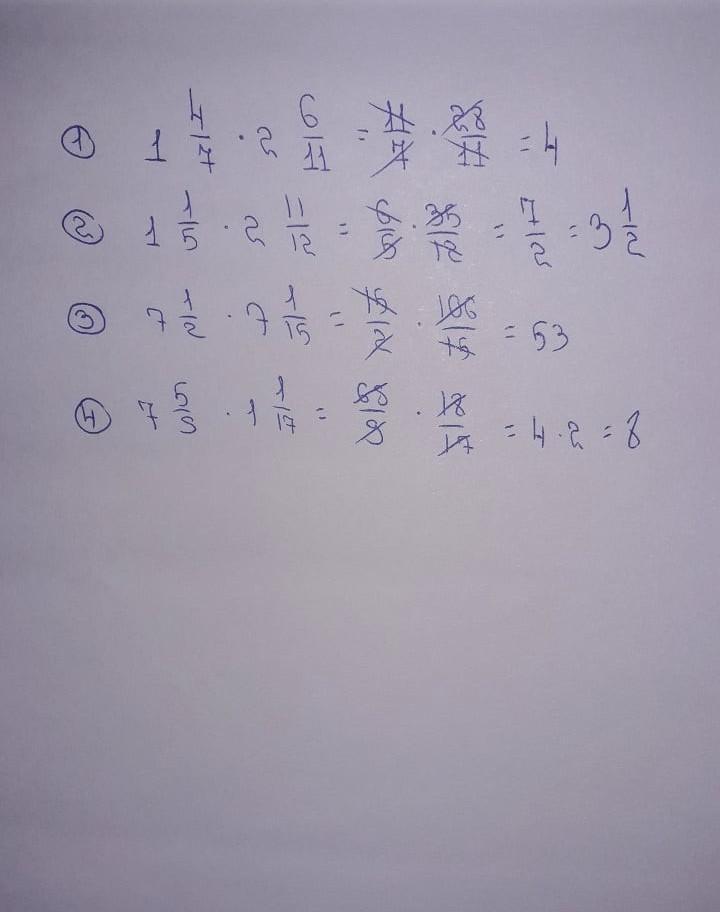 ① 1 4/7 · 2 6/11 = 11/7 · 28/11 = 4
② 1 1/5 · 2 11/12 = 6/5 · 35/12 = 7/2 = 3 1/2
③ 7 1/2 · 7 1/15 = 15/2 · 106/15 = 53
④ 7 5/9 · 1 1/17 = 68/9 · 18/17 = 4 · 2 = 8